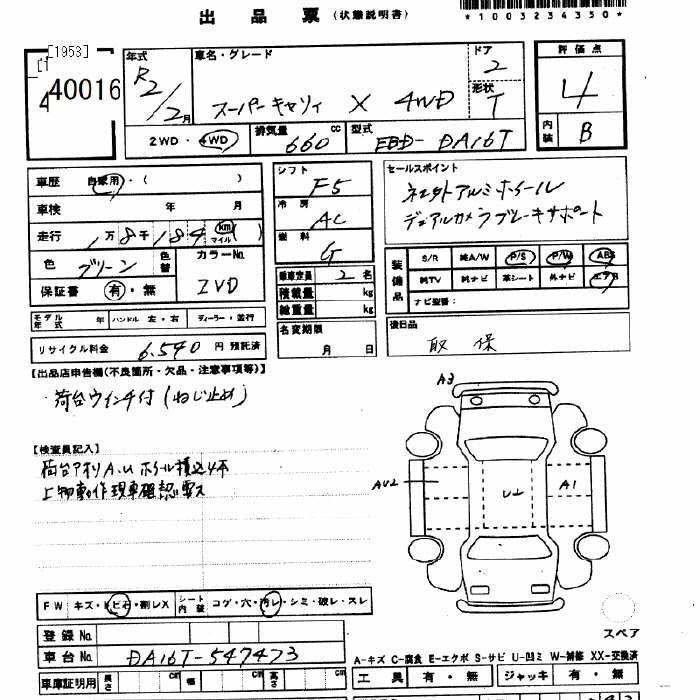 出品票 (状態説明書)
*1003234350*
[1953]
40016
年式
R2/2月
車名・グレード
スーパーキャリィ X 4WD
ドア
2
形状
T
評価点
4
内装
B
2WD・4WD
排気量 660 cc
型式 EBD-DA16T
車歴 自家用・( )
車検 年 月
走行 1万8千184 km マイル ( )
色 グリーン
色替
カラーNo.
ZVD
保証書 有・無
シフト
F5
冷房
AC
燃料
G
乗車定員 2名
積載量 kg
総重量 kg
名変期限
月 日
セールスポイント
社外アルミホイール
デュアルカメラブレーキサポート
装備品
S/R 純A/W P/S P/W ABS
純TV 純ナビ 革シート 外ナビ エアB
ナビ型番:
後日品
取 保
モデル年式 年 ハンドル 左・右 ディーラー・並行
リサイクル料金 6,540 円 預託済
【出品店申告欄(不良箇所・欠品・注意事項等)】
荷台ウインチ付(ねじ止め)
【検査員記入】
荷台アオリA.U ホイール積込4本
上物動作現車確認要ス
A3
AU2
U2
A1
FW キズ・トビ石・割レX
シート内装 コゲ・穴・汚レ・シミ・破レ・スレ
スペア
登録No.
車台No. DA16T-547473
A-キズ C-腐食 E-エクボ S-サビ U-凹ミ W-補修 XX-交換済
車庫証明用 長さ cm 幅 cm 高さ cm
工具 有・無 ジャッキ 有・無